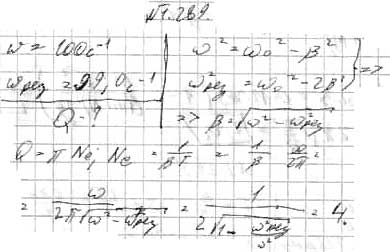 √1.289.
ω = 100 c⁻¹
ωрез = 99,0 c⁻¹
Q - ?
ω² = ω₀² - β²
ω²рез = ω₀² - 2β² } =>
=> β = √(ω² - ω²рез)
Q = π Ne; Ne = 1/(βT) = 1/β ω/(2π) =
= ω/(2π√(ω² - ω²рез)) = 1/(2√(1 - ω²рез/ω²)) = 4.